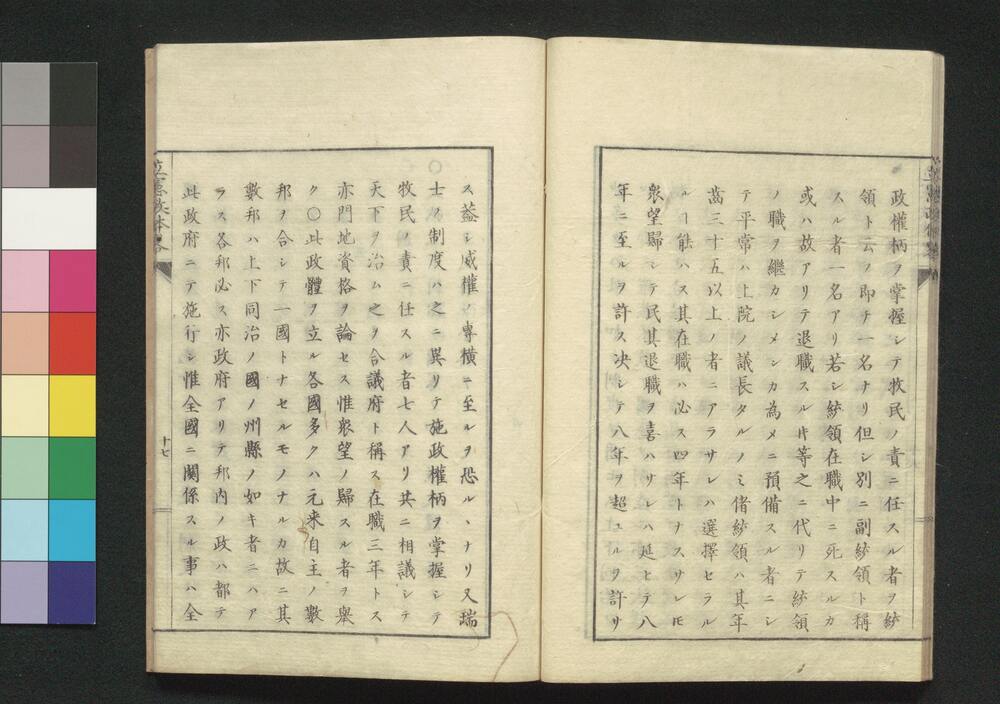 政權柄ヲ掌握シテ牧民ノ責ニ任スル者ヲ統
領ト云フ即チ一名ナリ但シ別ニ副統領ト稱
スル者一名アリ若シ統領在職中ニ死スルカ
或ハ故アリテ退職スル片等之ニ代リテ統領
ノ職ヲ繼カシメンカ為メニ預備スル者ニシ
テ平常ハ上院ノ議長タルノミ偖統領ハ其年
齒三十五以上ノ者ニアラサレハ選擇セラル
ルヿ能ハス其在職ハ必ス四年トナスサレ𪜈
衆望歸シテ民其退職ヲ喜ハサレハ延ヒテ八
年ニ至ルヲ許ス决シテ八年ヲ超ユルヲ許サ
ス蓋シ威權ノ専横ニ至ルヲ恐ルヽナリ又瑞
士ノ制度ハ之ニ異リテ施政權柄ヲ掌握シテ
牧民ノ責ニ任スル者七人アリ共ニ相議シテ
天下ヲ治ム之ヲ合議府ト稱ス在職三年トス
亦門地資格ヲ論セス惟衆望ノ歸スル者ヲ舉
ク〇此政體ヲ立ル各國多クハ元来自主ノ數
邦ヲ合シテ一國トナセルモノナルカ故ニ其
數邦ハ上下同治ノ國ノ州縣ノ如キ者ニハア
ラス各邦必ス亦政府アリテ邦内ノ政ハ都テ
此政府ニテ施行シ惟全國ニ関係スル事ハ全
立憲政体略
十七